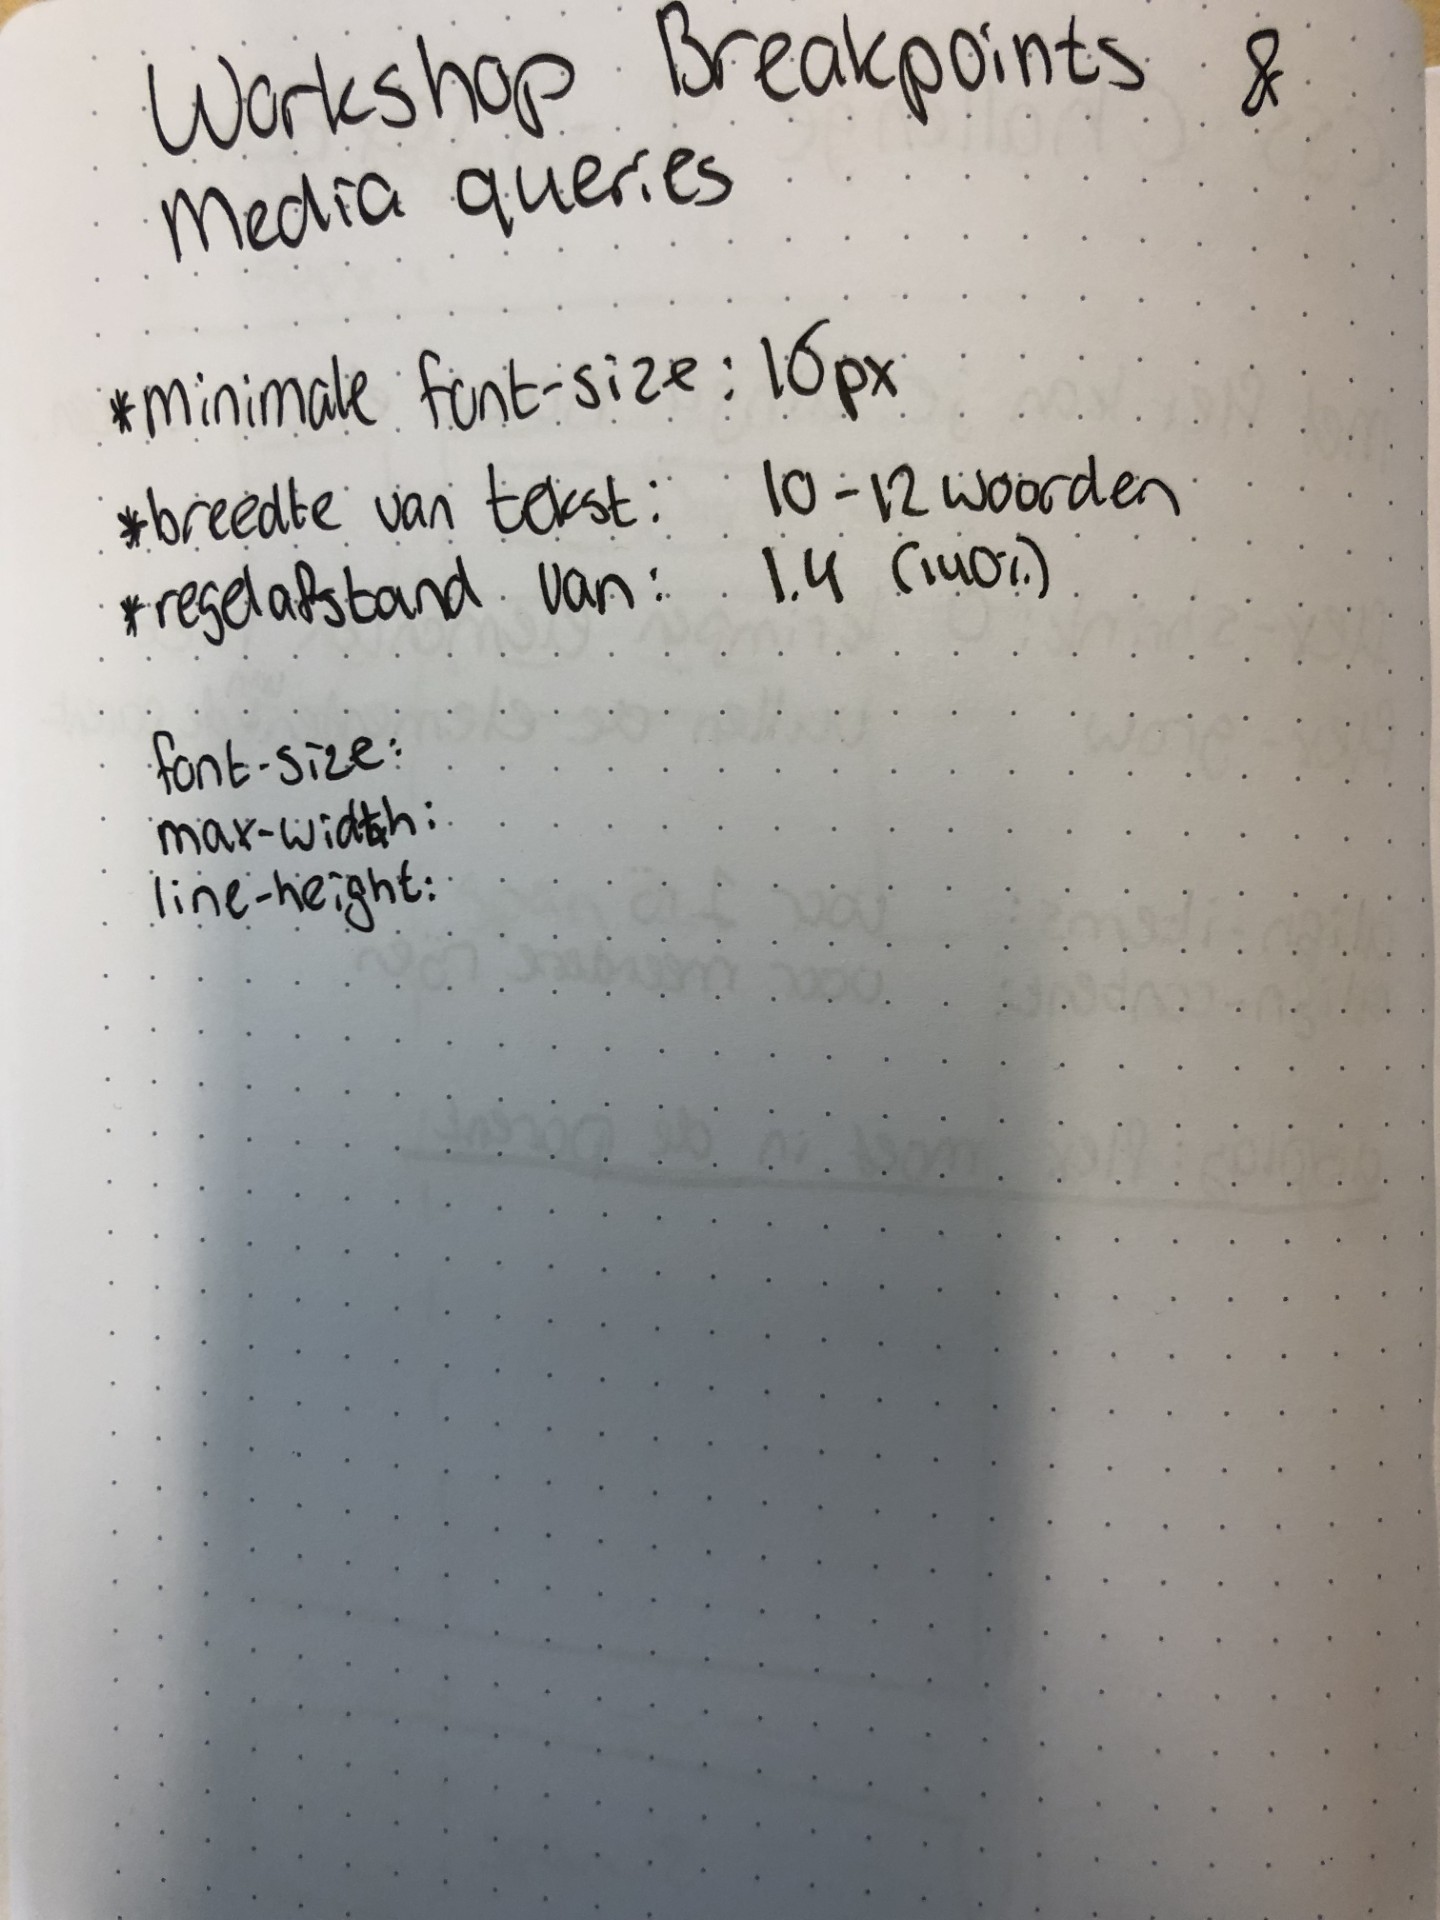 Workshop Breakpoints &
Media queries
*minimale font-size: 16px
*breedte van tekst: 10-12 woorden
*regelafstand van: 1.4 (140%)
font-size:
max-width:
line-height: